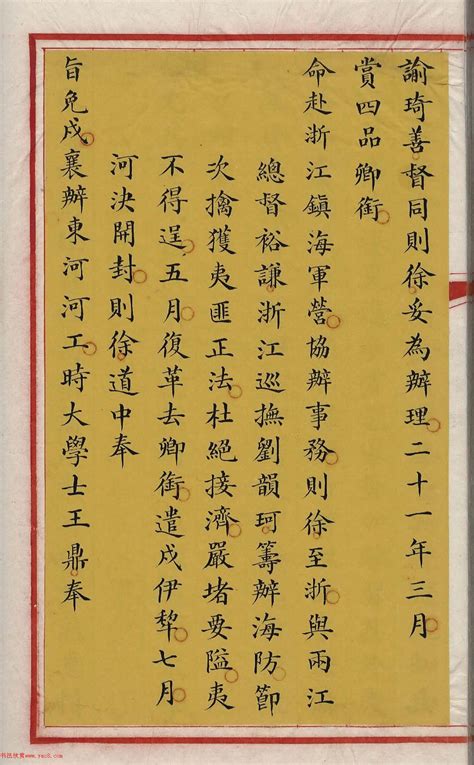 諭琦善督同則徐妥為辦理二十一年三月
賞四品卿銜
命赴浙江鎮海軍營協辦事務則徐至浙與兩江
總督裕謙浙江巡撫劉韻珂籌辦海防節
次擒獲夷匪正法杜絕接濟嚴堵要隘夷
不得逞五月復革去卿銜遣戍伊犂七月
河決開封則徐道中奉
旨免戍襄辦東河河工時大學士王鼎奉
书法欣赏www.yac8.com